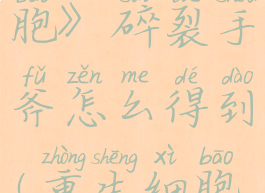 胞》碎裂手
fǔ zěn me dé dào
斧怎么得到
zhòng shēng xì bāo
(重生细胞